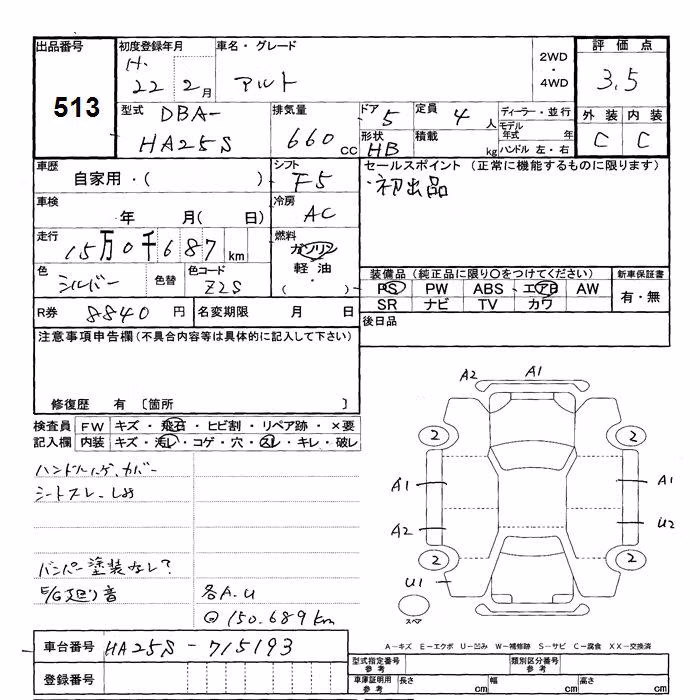 出品番号 初度登録年月 車名・グレード 2WD・4WD 評価点
513 H. 22 2月 アルト 3.5
型式 DBA- HA25S 排気量 660 cc ドア 5 定員 4 人 ディーラー・並行 外装 内装
形状 HB 積載 kg モデル年式 年 ハンドル 左・右 C C
車歴 自家用・( ) シフト F5 セールスポイント (正常に機能するものに限ります)
・初出品
車検 年 月( 日) 冷房 AC
走行 15万0千687 km 燃料 ガソリン 軽油 ・( )
色 シルバー 色替 色コード Z2S
装備品 (純正品に限り○をつけてください) 新車保証書
PS PW ABS エアB AW 有・無
SR ナビ TV カワ
R券 8840 円 名変期限 月 日 後日品
注意事項申告欄(不具合内容等は具体的に記入して下さい)
修復歴 有 〔箇所 〕
検査員 FW キズ・飛石・ヒビ割・リペア跡・×要
記入欄 内装 キズ・汚レ・コゲ・穴・スレ・キレ・破レ
A2 A1
2 2
ハンドルハゲ、カバー
シートスレ・シミ
A1 A1
A2 U2
2 2
バンパー塗装なし?
E/G廻り音 各A.U
U1
@150.689km
スペア
車台番号 HA25S-715193
A-キズ E-エクボ U-凹み W-補修跡 S-サビ C-腐食 XX-交換済
型式指定番号 参考 類別区分番号 参考
登録番号 車庫証明用 参考 長さ cm 幅 cm 高さ cm